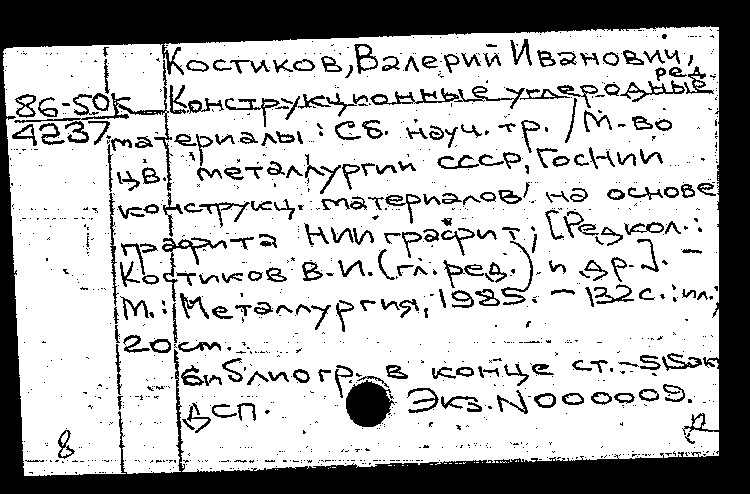 Костиков, Валерий Иванович,
ред.
86-50к Конструкционные углеродные
4237 материалы : Сб. науч. тр. / М-во
цв. металлургии СССР, ГосНИИ
конструкц. материалов на основе
графита НИИграфит; [Редкол.:
Костиков В.И. (гл. ред.) и др.]. -
М.: Металлургия, 1985. - 132с.: ил.;
20 см.
Библиогр. в конце ст. -
ДСП. Экз. N000009.
8